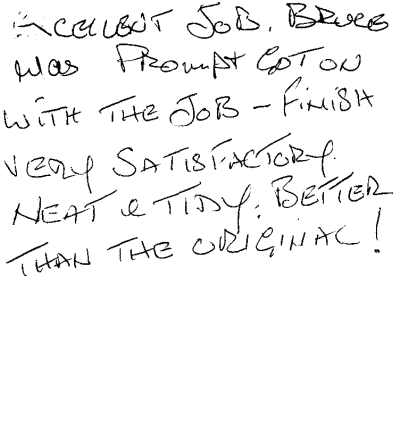 EXCELLENT JOB. BRUCE
was PROMPT GOT ON
WITH THE JOB - FINISH
VERY SATISFACTORY.
NEAT & TIDY. BETTER
THAN THE ORIGINAL!